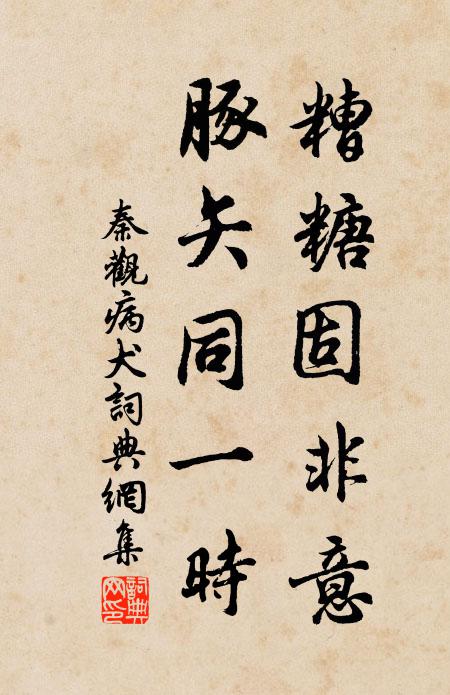 糟糖固非意
豚矢同一時
秦觀病犬詞典網集
詞典网印